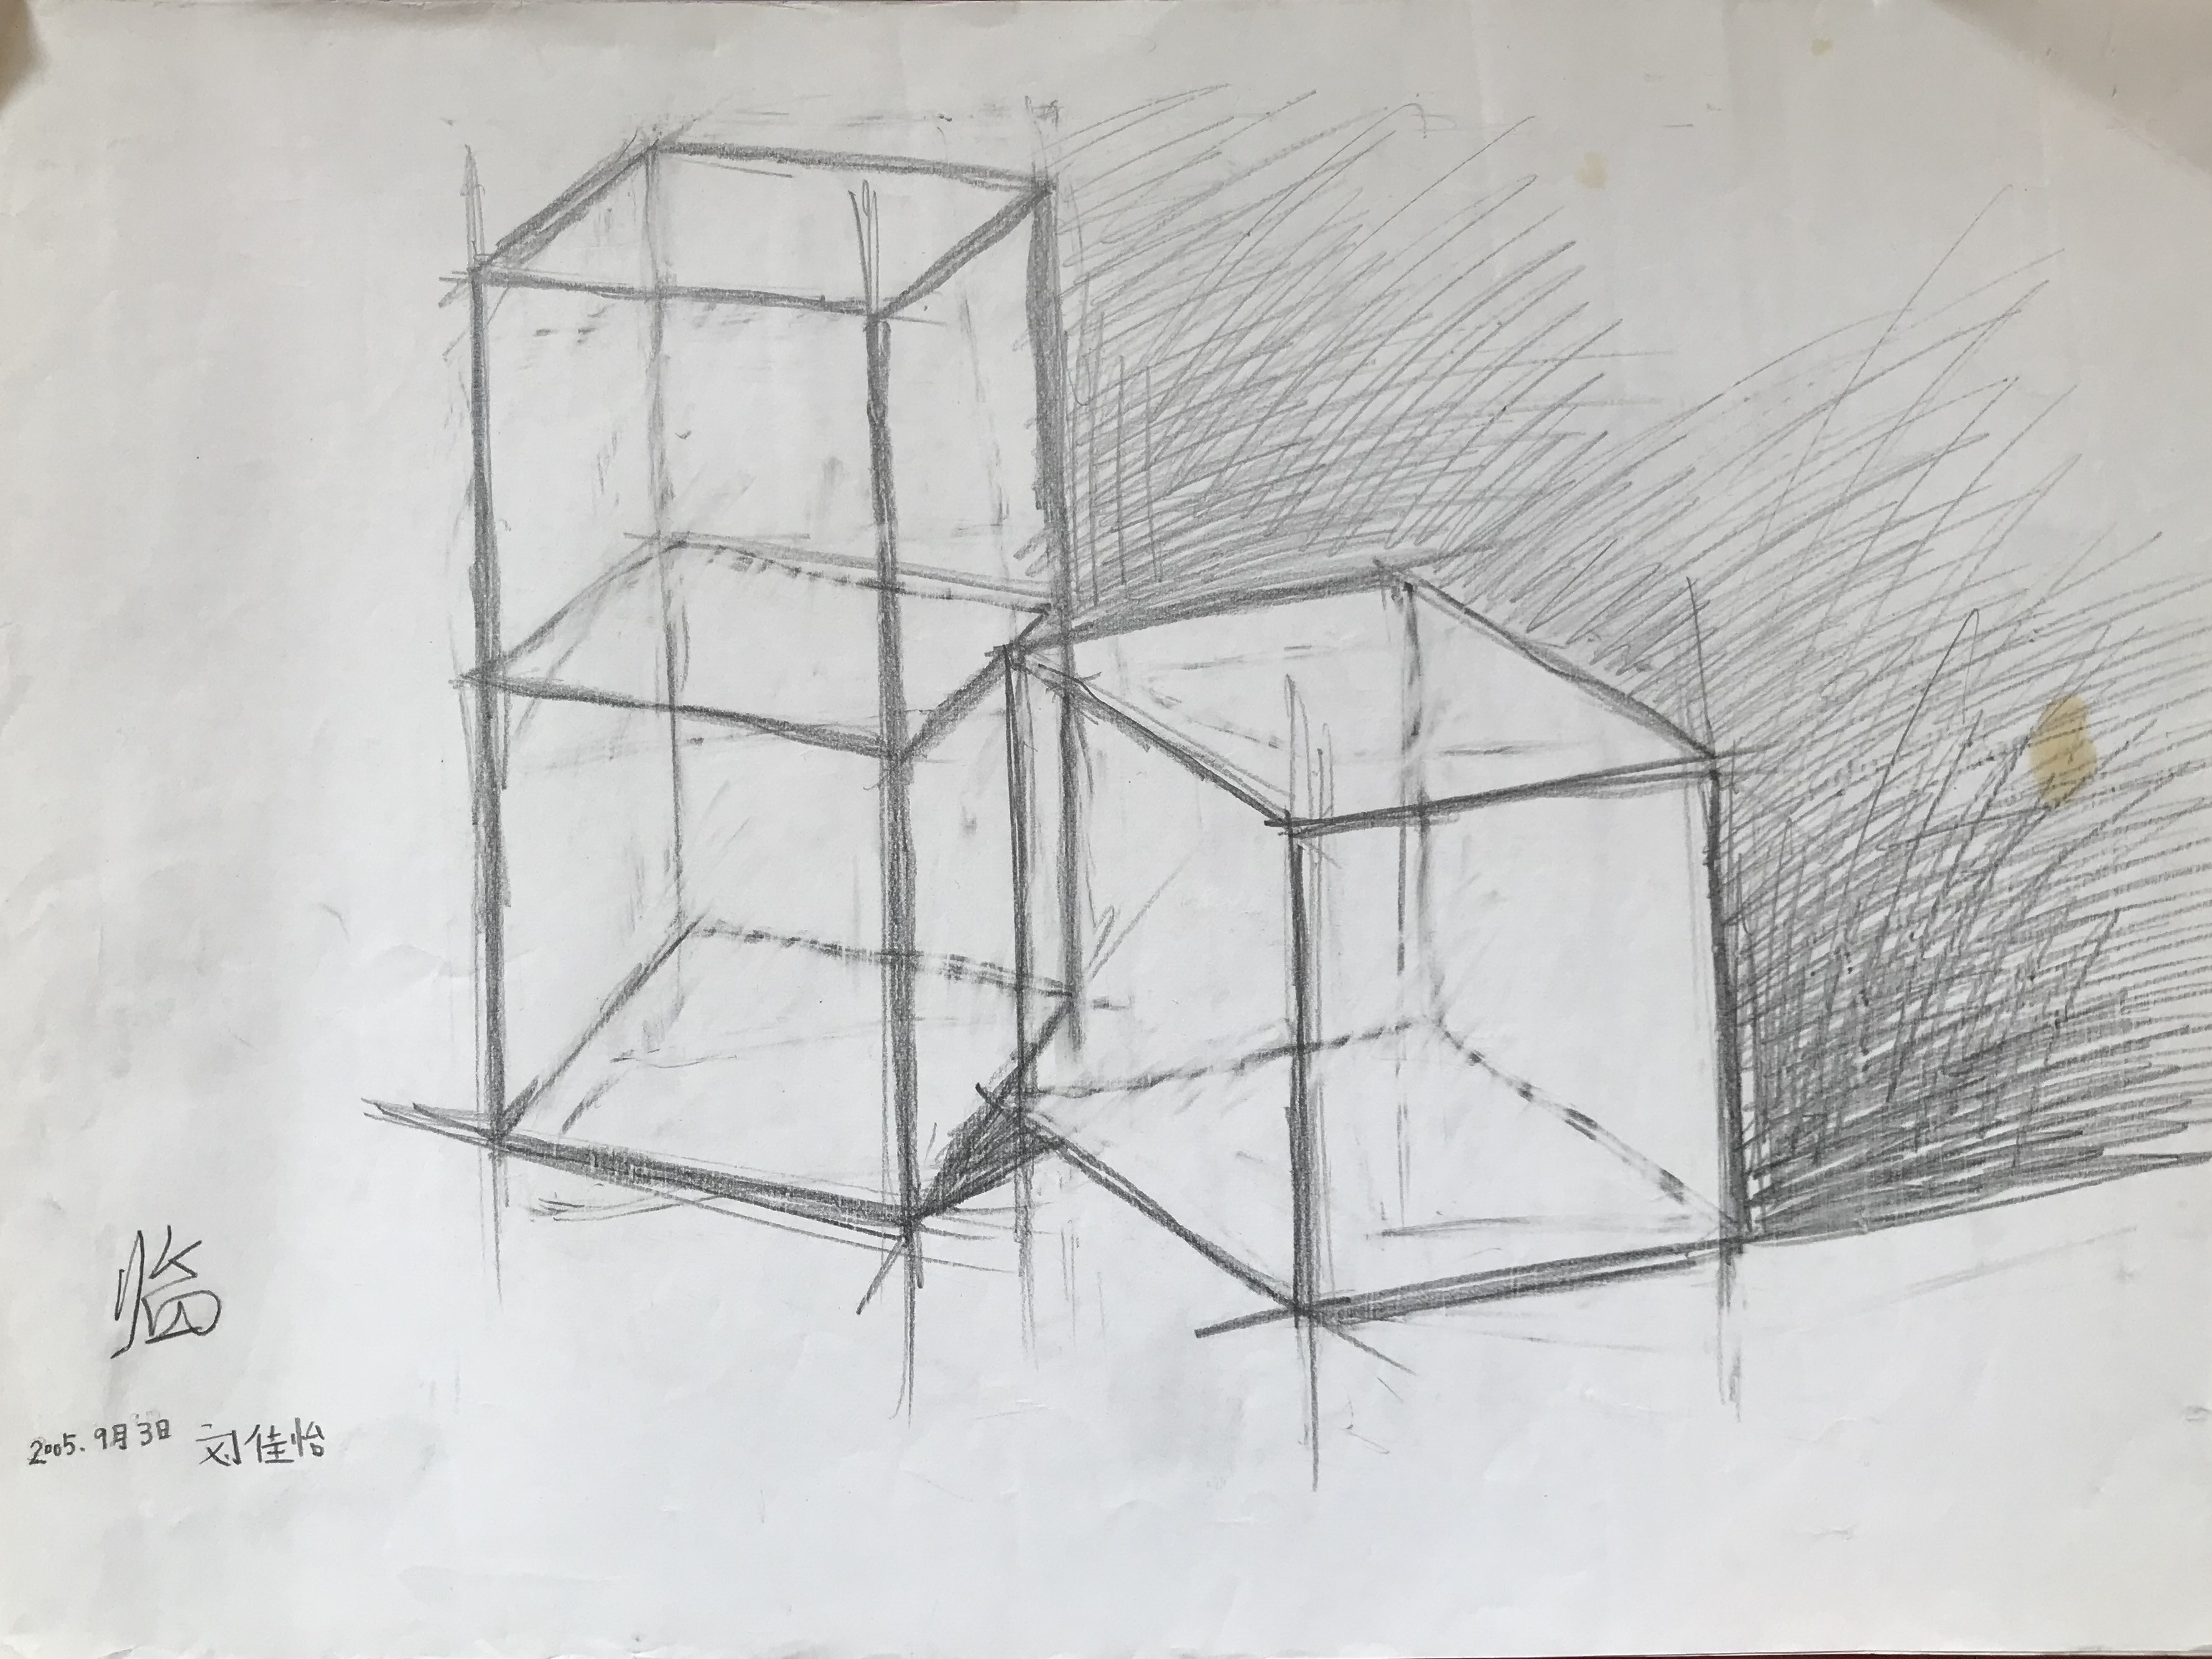 临
2005.9月3日 刘佳怡